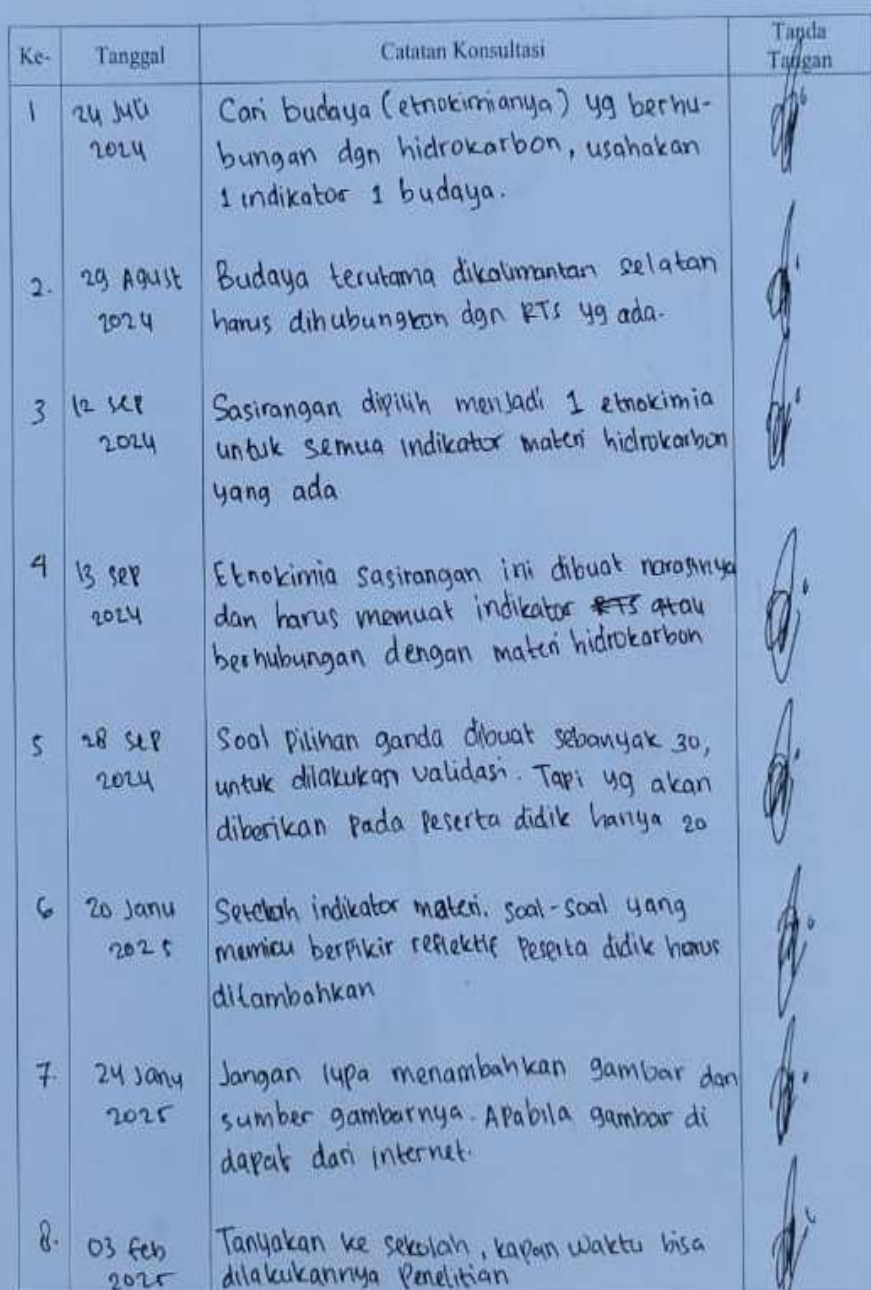 Ke- Tanggal Catatan Konsultasi Tanda Tangan
1 24 Juli 2024 Cari budaya (etnokimianya) yg berhu-
bungan dgn hidrokarbon, usahakan
1 indikator 1 budaya.
2. 29 Agust 2024 Budaya terutama dikalimantan selatan
harus dihubungkan dgn RTS yg ada.
3 12 sep 2024 Sasirangan dipilih menjadi 1 etnokimia
untuk semua indikator materi hidrokarbon
yang ada
4 13 sep 2024 Etnokimia sasirangan ini dibuat narasinya
dan harus memuat indikator RTS atau
berhubungan dengan materi hidrokarbon
5 28 sep 2024 Soal pilihan ganda dibuat sebanyak 30,
untuk dilakukan validasi. Tapi yg akan
diberikan pada peserta didik hanya 20
6 20 Janu 2025 Setelah indikator materi, soal-soal yang
memicu berpikir reflektif peserta didik harus
ditambahkan
7. 24 Janu 2025 Jangan lupa menambahkan gambar dan
sumber gambarnya. Apabila gambar di
dapat dari internet.
8. 03 feb 2025 Tanyakan ke sekolah, kapan waktu bisa
dilakukannya penelitian